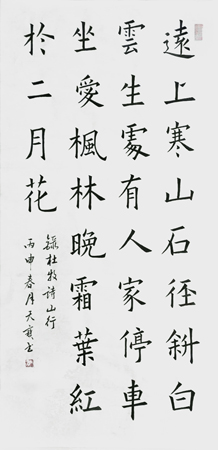 遠上寒山石徑斜白
雲生處有人家停車
坐愛楓林晚霜葉紅
於二月花
錄杜牧詩山行
丙申春月天书